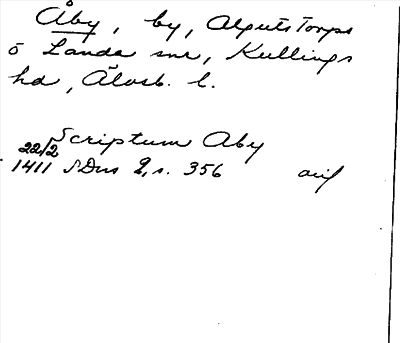 Åby, by, Algutstorps
o Landa snr, Kullings
hd, Älvsb. l.
Scriptum Aby
22/2
1411 SDns 2, s. 356 avil